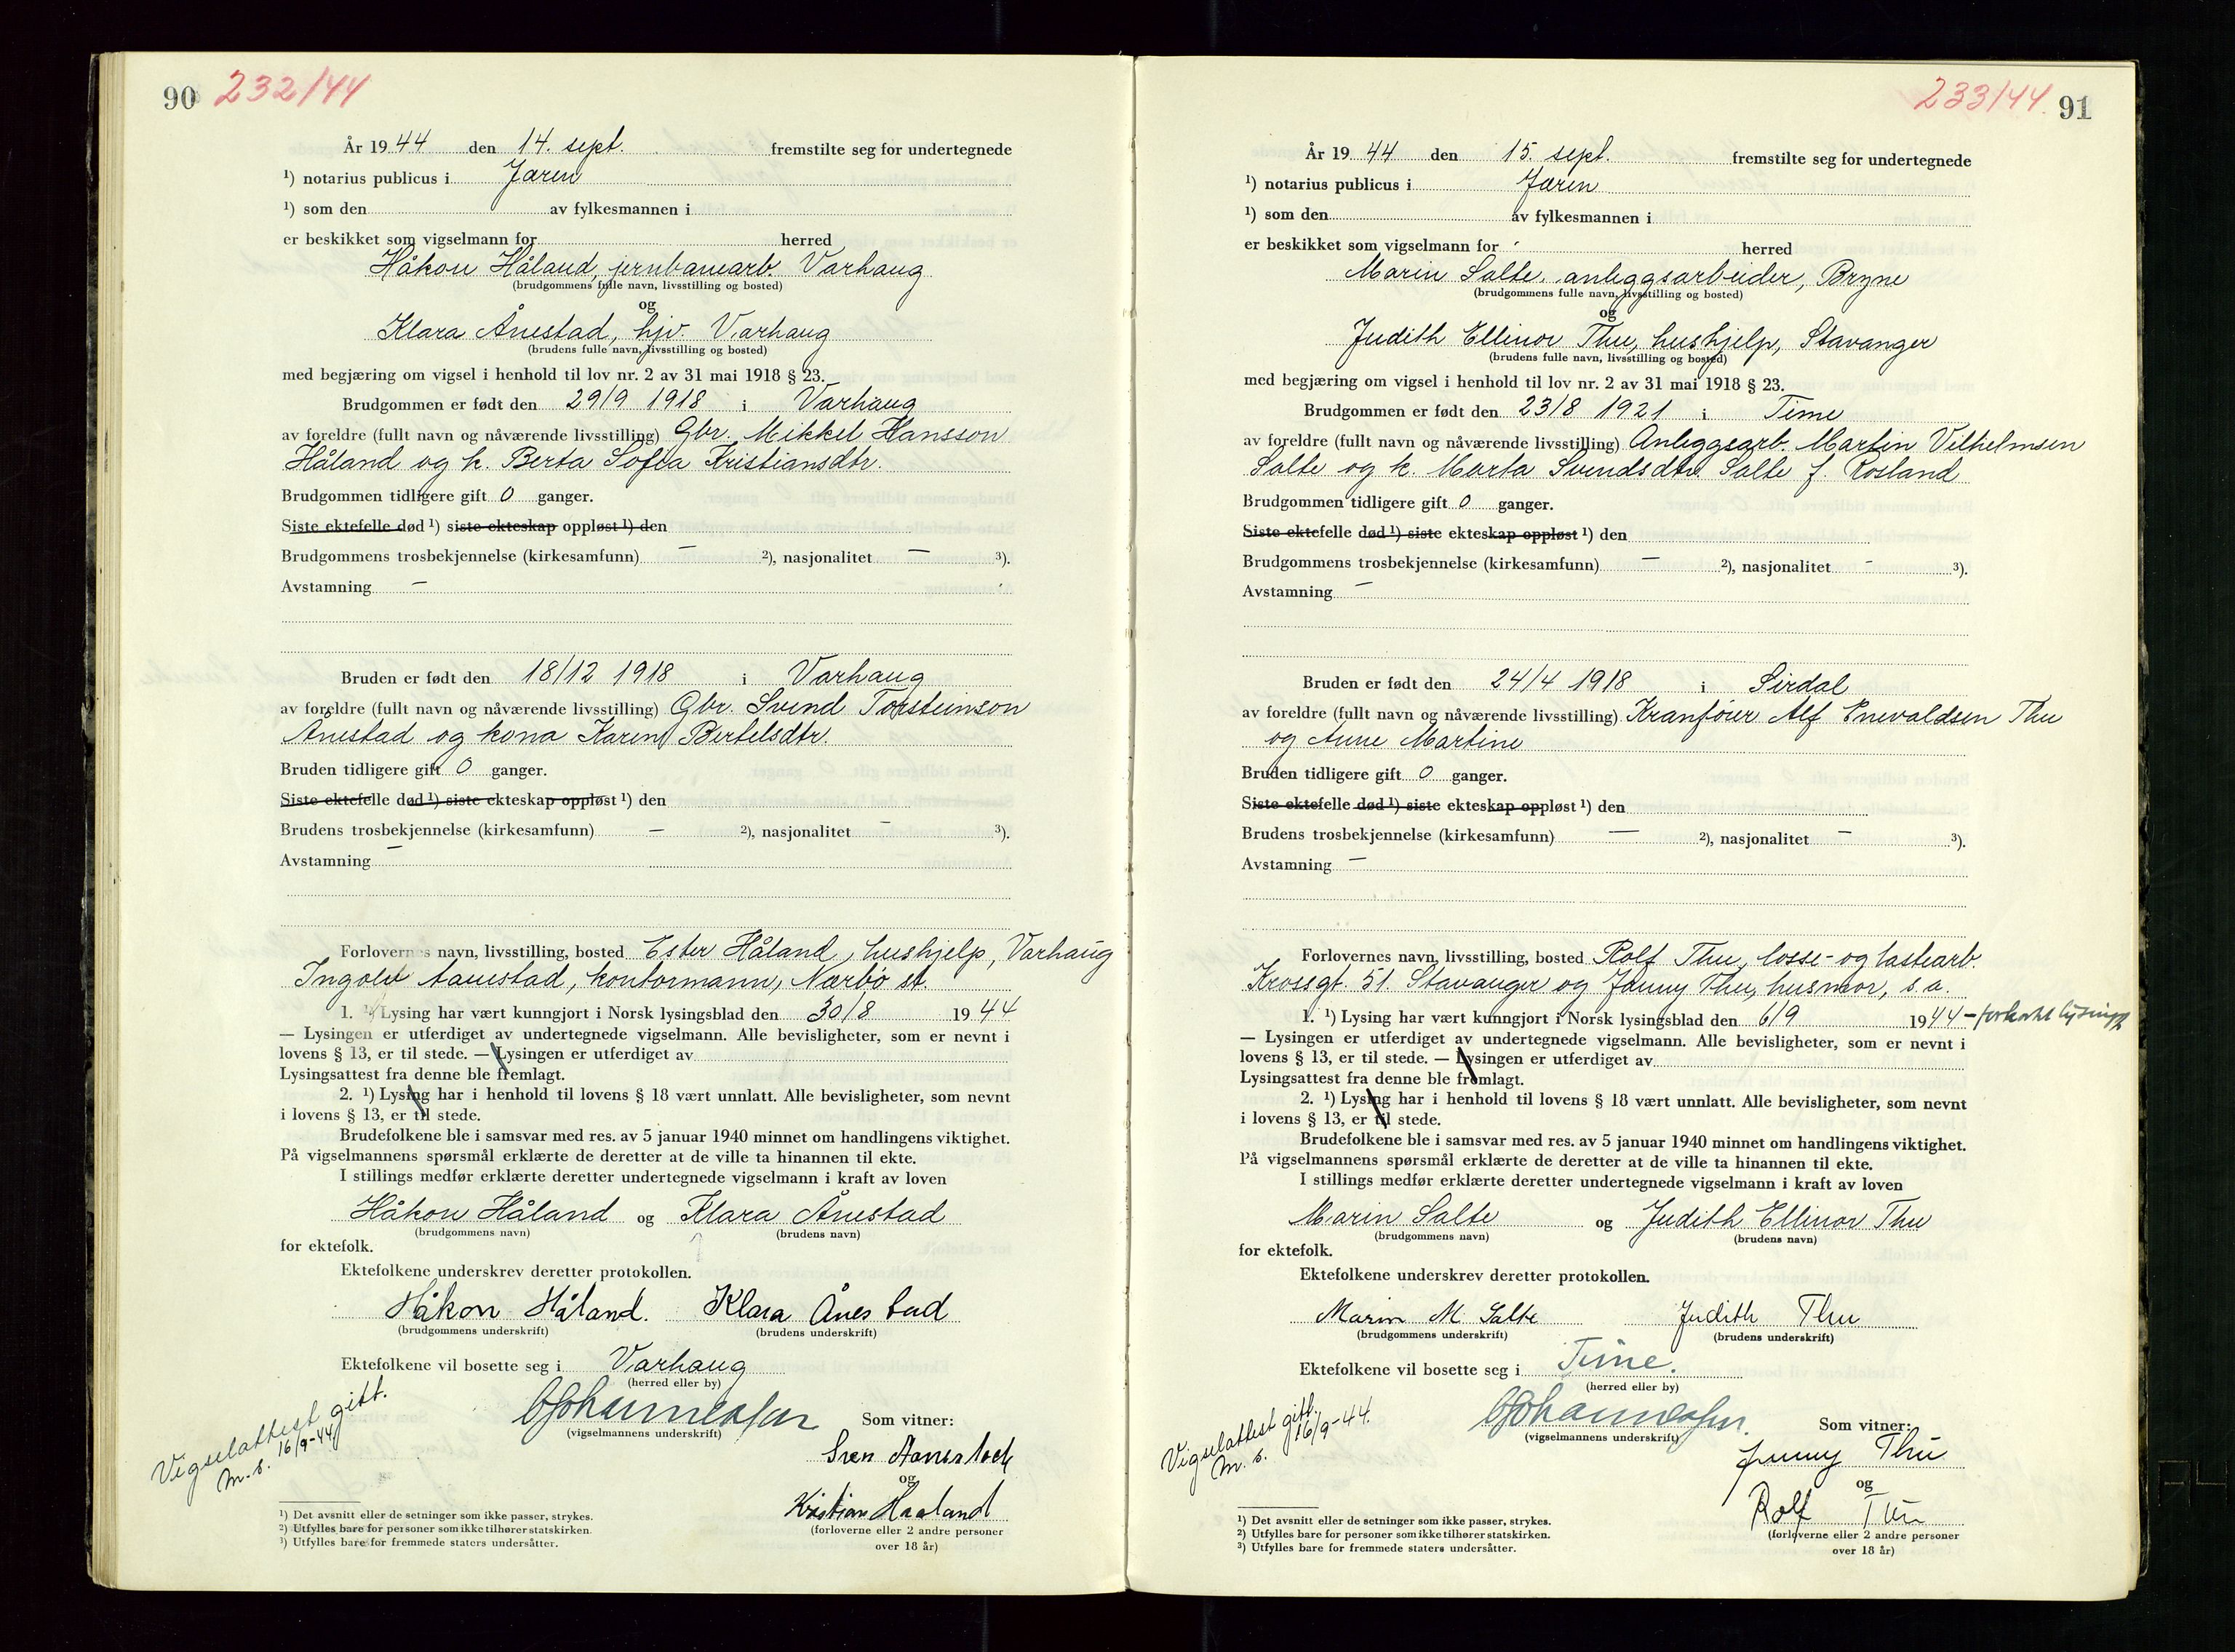 90 232/44
År 1944 den 14. sept. fremstilte seg for undertegnede
¹) notarius publicus i Jæren
¹) som den av fylkesmannen i
er beskikket som vigselmann for herred
Håkon Håland, jernbanearb. Varhaug
(brudgommens fulle navn, livsstilling og bosted)
og
Klara Ånestad, hjv. Varhaug
(brudens fulle navn, livsstilling og bosted)
med begjæring om vigsel i henhold til lov nr. 2 av 31 mai 1918 § 23.
Brudgommen er født den 29/9 1918 i Varhaug
av foreldre (fullt navn og nåværende livsstilling) Gbr. Mikkel Hansson
Håland og k. Berta Sofia Kristiansdtr.
Brudgommen tidligere gift 0 ganger.
Siste ektefelle død ¹) siste ekteskap oppløst ¹) den
Brudgommens trosbekjennelse (kirkesamfunn) — ²), nasjonalitet — ³).
Avstamning —
Bruden er født den 18/12 1918 i Varhaug
av foreldre (fullt navn og nåværende livsstilling) Gbr. Svend Torsteinson
Ånestad og kona Karen Bertelsdtr.
Bruden tidligere gift 0 ganger.
Siste ektefelle død ¹) siste ekteskap oppløst ¹) den
Brudens trosbekjennelse (kirkesamfunn) — ²), nasjonalitet — ³).
Avstamning —
Forlovernes navn, livsstilling, bosted Ester Håland, hushjelp, Varhaug
Ingolv Aanestad, kontormann, Nærbø st.
1. ¹) Lysing har vært kunngjort i Norsk lysingsblad den 30/8 1944
— Lysingen er utferdiget av undertegnede vigselmann. Alle bevisligheter, som er nevnt i
lovens § 13, er til stede. — Lysingen er utferdiget av
Lysingsattest fra denne ble fremlagt.
2. ¹) Lysing har i henhold til lovens § 18 vært unnlatt. Alle bevisligheter, som nevnt
i lovens § 13, er til stede.
Brudefolkene ble i samsvar med res. av 5 januar 1940 minnet om handlingens viktighet.
På vigselmannens spørsmål erklærte de deretter at de ville ta hinannen til ekte.
I stillings medfør erklærte deretter undertegnede vigselmann i kraft av loven
Håkon Håland og Klara Ånestad
(brudgommens navn) (brudens navn)
for ektefolk.
Ektefolkene underskrev deretter protokollen.
Håkon Håland. Klara Ånestad
(brudgommens underskrift) (brudens underskrift)
Ektefolkene vil bosette seg i Varhaug
(herred eller by)
Vigselattest gitt.
m. s. 16/9-44
(vigselmannens underskrift) Som vitner:
Sven
og
Kristian Haaland
(forloverne eller 2 andre personer
over 18 år)
¹) Det avsnitt eller de setninger som ikke passer, strykes.
²) Utfylles bare for personer som ikke tilhører statskirken.
³) Utfylles bare for fremmede staters undersåtter.
233/44. 91
År 1944 den 15. sept. fremstilte seg for undertegnede
¹) notarius publicus i Jæren
¹) som den av fylkesmannen i
er beskikket som vigselmann for herred
Marin Salte, anleggsarbeider, Bryne
(brudgommens fulle navn, livsstilling og bosted)
og
Judith Ellinor Thu, hushjelp, Stavanger
(brudens fulle navn, livsstilling og bosted)
med begjæring om vigsel i henhold til lov nr. 2 av 31 mai 1918 § 23.
Brudgommen er født den 23/8 1921 i Time
av foreldre (fullt navn og nåværende livsstilling) Anleggsarb. Martin Vilhelmsen
Salte og k. Marta Svendsdtr. Salte f. Rosland
Brudgommen tidligere gift 0 ganger.
Siste ektefelle død ¹) siste ekteskap oppløst ¹) den
Brudgommens trosbekjennelse (kirkesamfunn) — ²), nasjonalitet - ³).
Avstamning —
Bruden er født den 24/4 1918 i Sirdal
av foreldre (fullt navn og nåværende livsstilling) Kranfører Alf Enevaldsen Thu
og Anne Martine
Bruden tidligere gift 0 ganger.
Siste ektefelle død ¹) siste ekteskap oppløst ¹) den
Brudens trosbekjennelse (kirkesamfunn) — ²), nasjonalitet — ³).
Avstamning —
Forlovernes navn, livsstilling, bosted Rolf Thu, losse- og lastearb.
Krossgt. 51. Stavanger og Jenny Thu, husmor, s. a.
1. ¹) Lysing har vært kunngjort i Norsk lysingsblad den 6/9 1944 - forkortet lysing
— Lysingen er utferdiget av undertegnede vigselmann. Alle bevisligheter, som er nevnt i
lovens § 13, er til stede. — Lysingen er utferdiget av
Lysingsattest fra denne ble fremlagt.
2. ¹) Lysing har i henhold til lovens § 18 vært unnlatt. Alle bevisligheter, som nevnt
i lovens § 13, er til stede.
Brudefolkene ble i samsvar med res. av 5 januar 1940 minnet om handlingens viktighet.
På vigselmannens spørsmål erklærte de deretter at de ville ta hinannen til ekte.
I stillings medfør erklærte deretter undertegnede vigselmann i kraft av loven
Marin Salte og Judith Ellinor Thu
(brudgommens navn) (brudens navn)
for ektefolk.
Ektefolkene underskrev deretter protokollen.
Marin M. Salte Judith Thu
(brudgommens underskrift) (brudens underskrift)
Ektefolkene vil bosette seg i Time.
(herred eller by)
Vigselattest gitt.
m. s. 16/9-44.
(vigselmannens underskrift) Som vitner:
Jenny Thu
og
Rolf Thu
(forloverne eller 2 andre personer
over 18 år)
¹) Det avsnitt eller de setninger som ikke passer, strykes.
²) Utfylles bare for personer som ikke tilhører statskirken.
³) Utfylles bare for fremmede staters undersåtter.